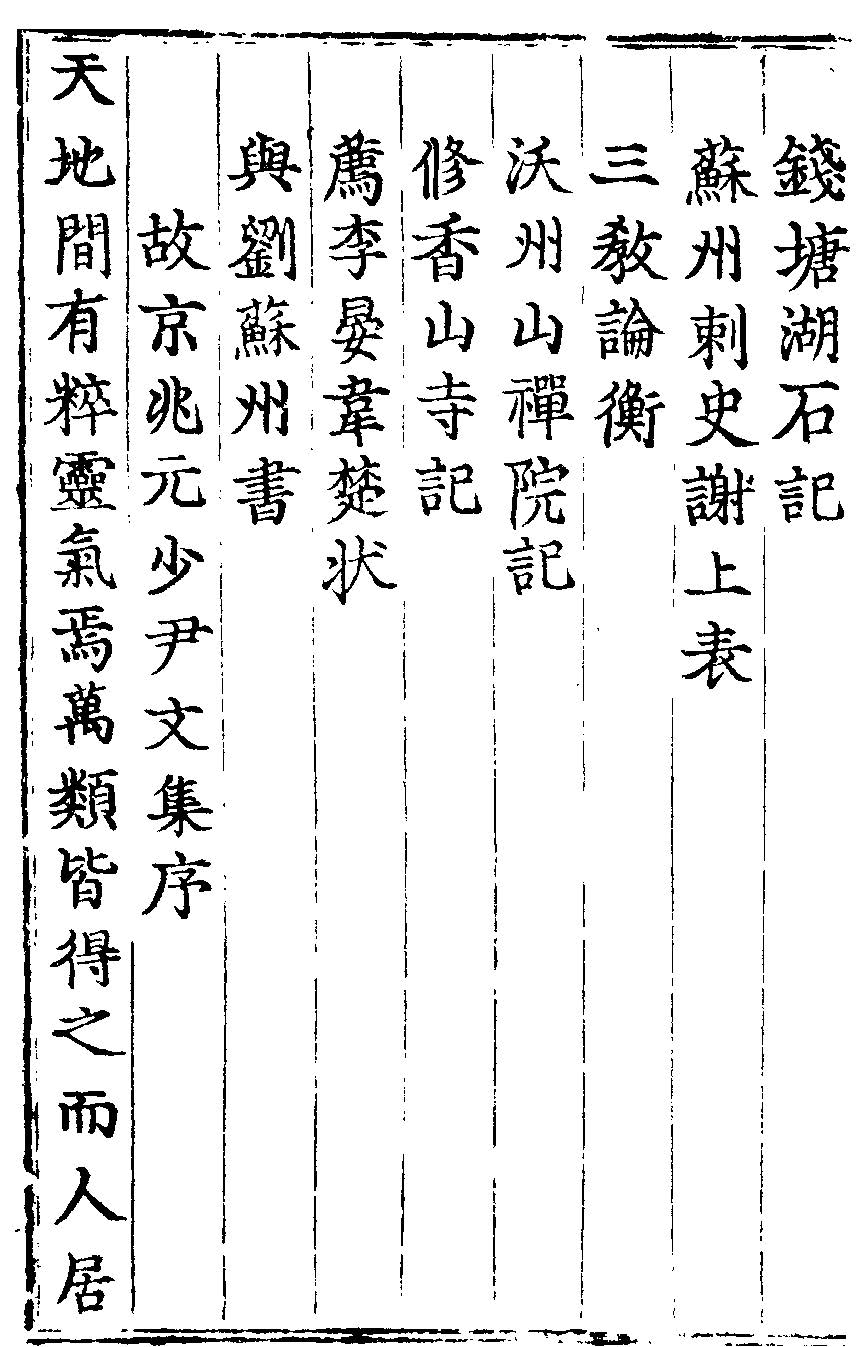 錢塘湖石記
蘇州刺史謝上表
三教論衡
沃州山禪院記
修香山寺記
薦李晏韋楚状
與劉蘇州書
故京兆元少尹文集序
天地間有粹靈氣焉萬類皆得之而人居